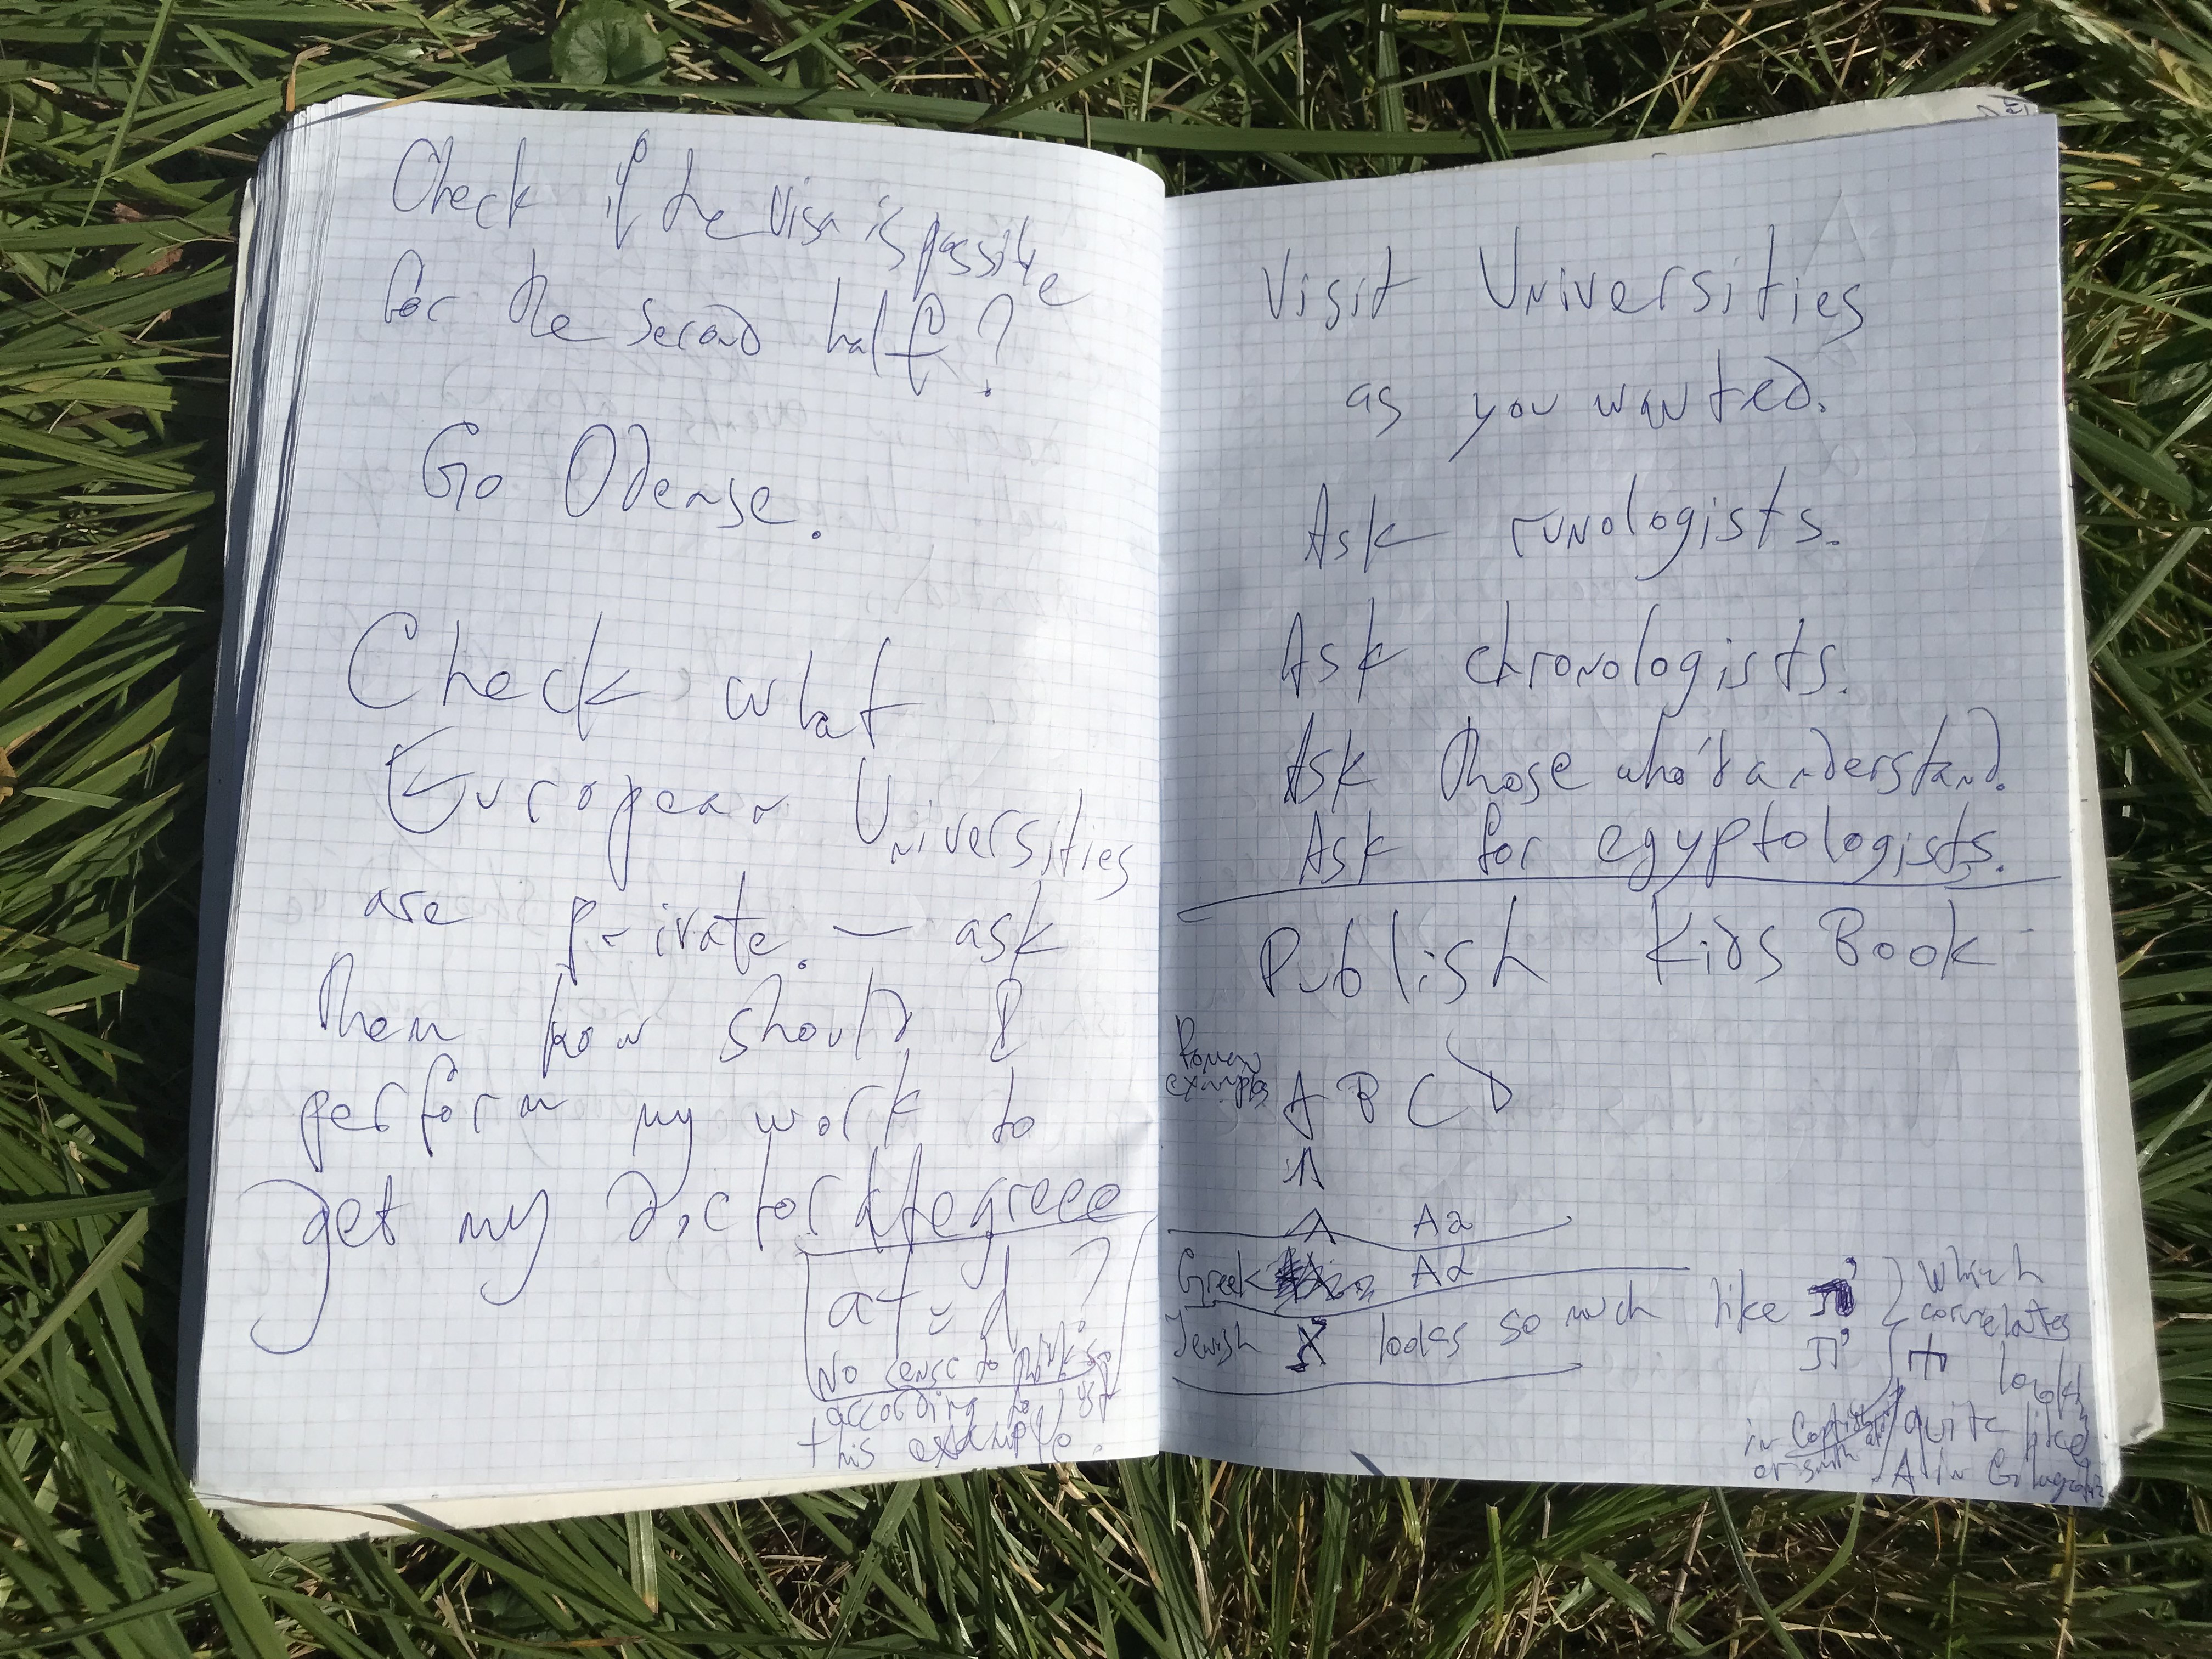 Check if the visa is possible
for the second half?
Go Odense.
Check what
European Universities
are private: — ask
them how should I
perform my work to
get my Dr, doctor degree
at y
No sence to
according to
this example.
Visit Universities
as you wanted.
Ask runologists.
Ask chronologists.
Ask those who understand.
Ask for egyptologists.
Publish Kids Book
examples
A B C
A Aa
Greek Aα
Jewish א looks so much like
which
correlates
looks
in quite like
or A in